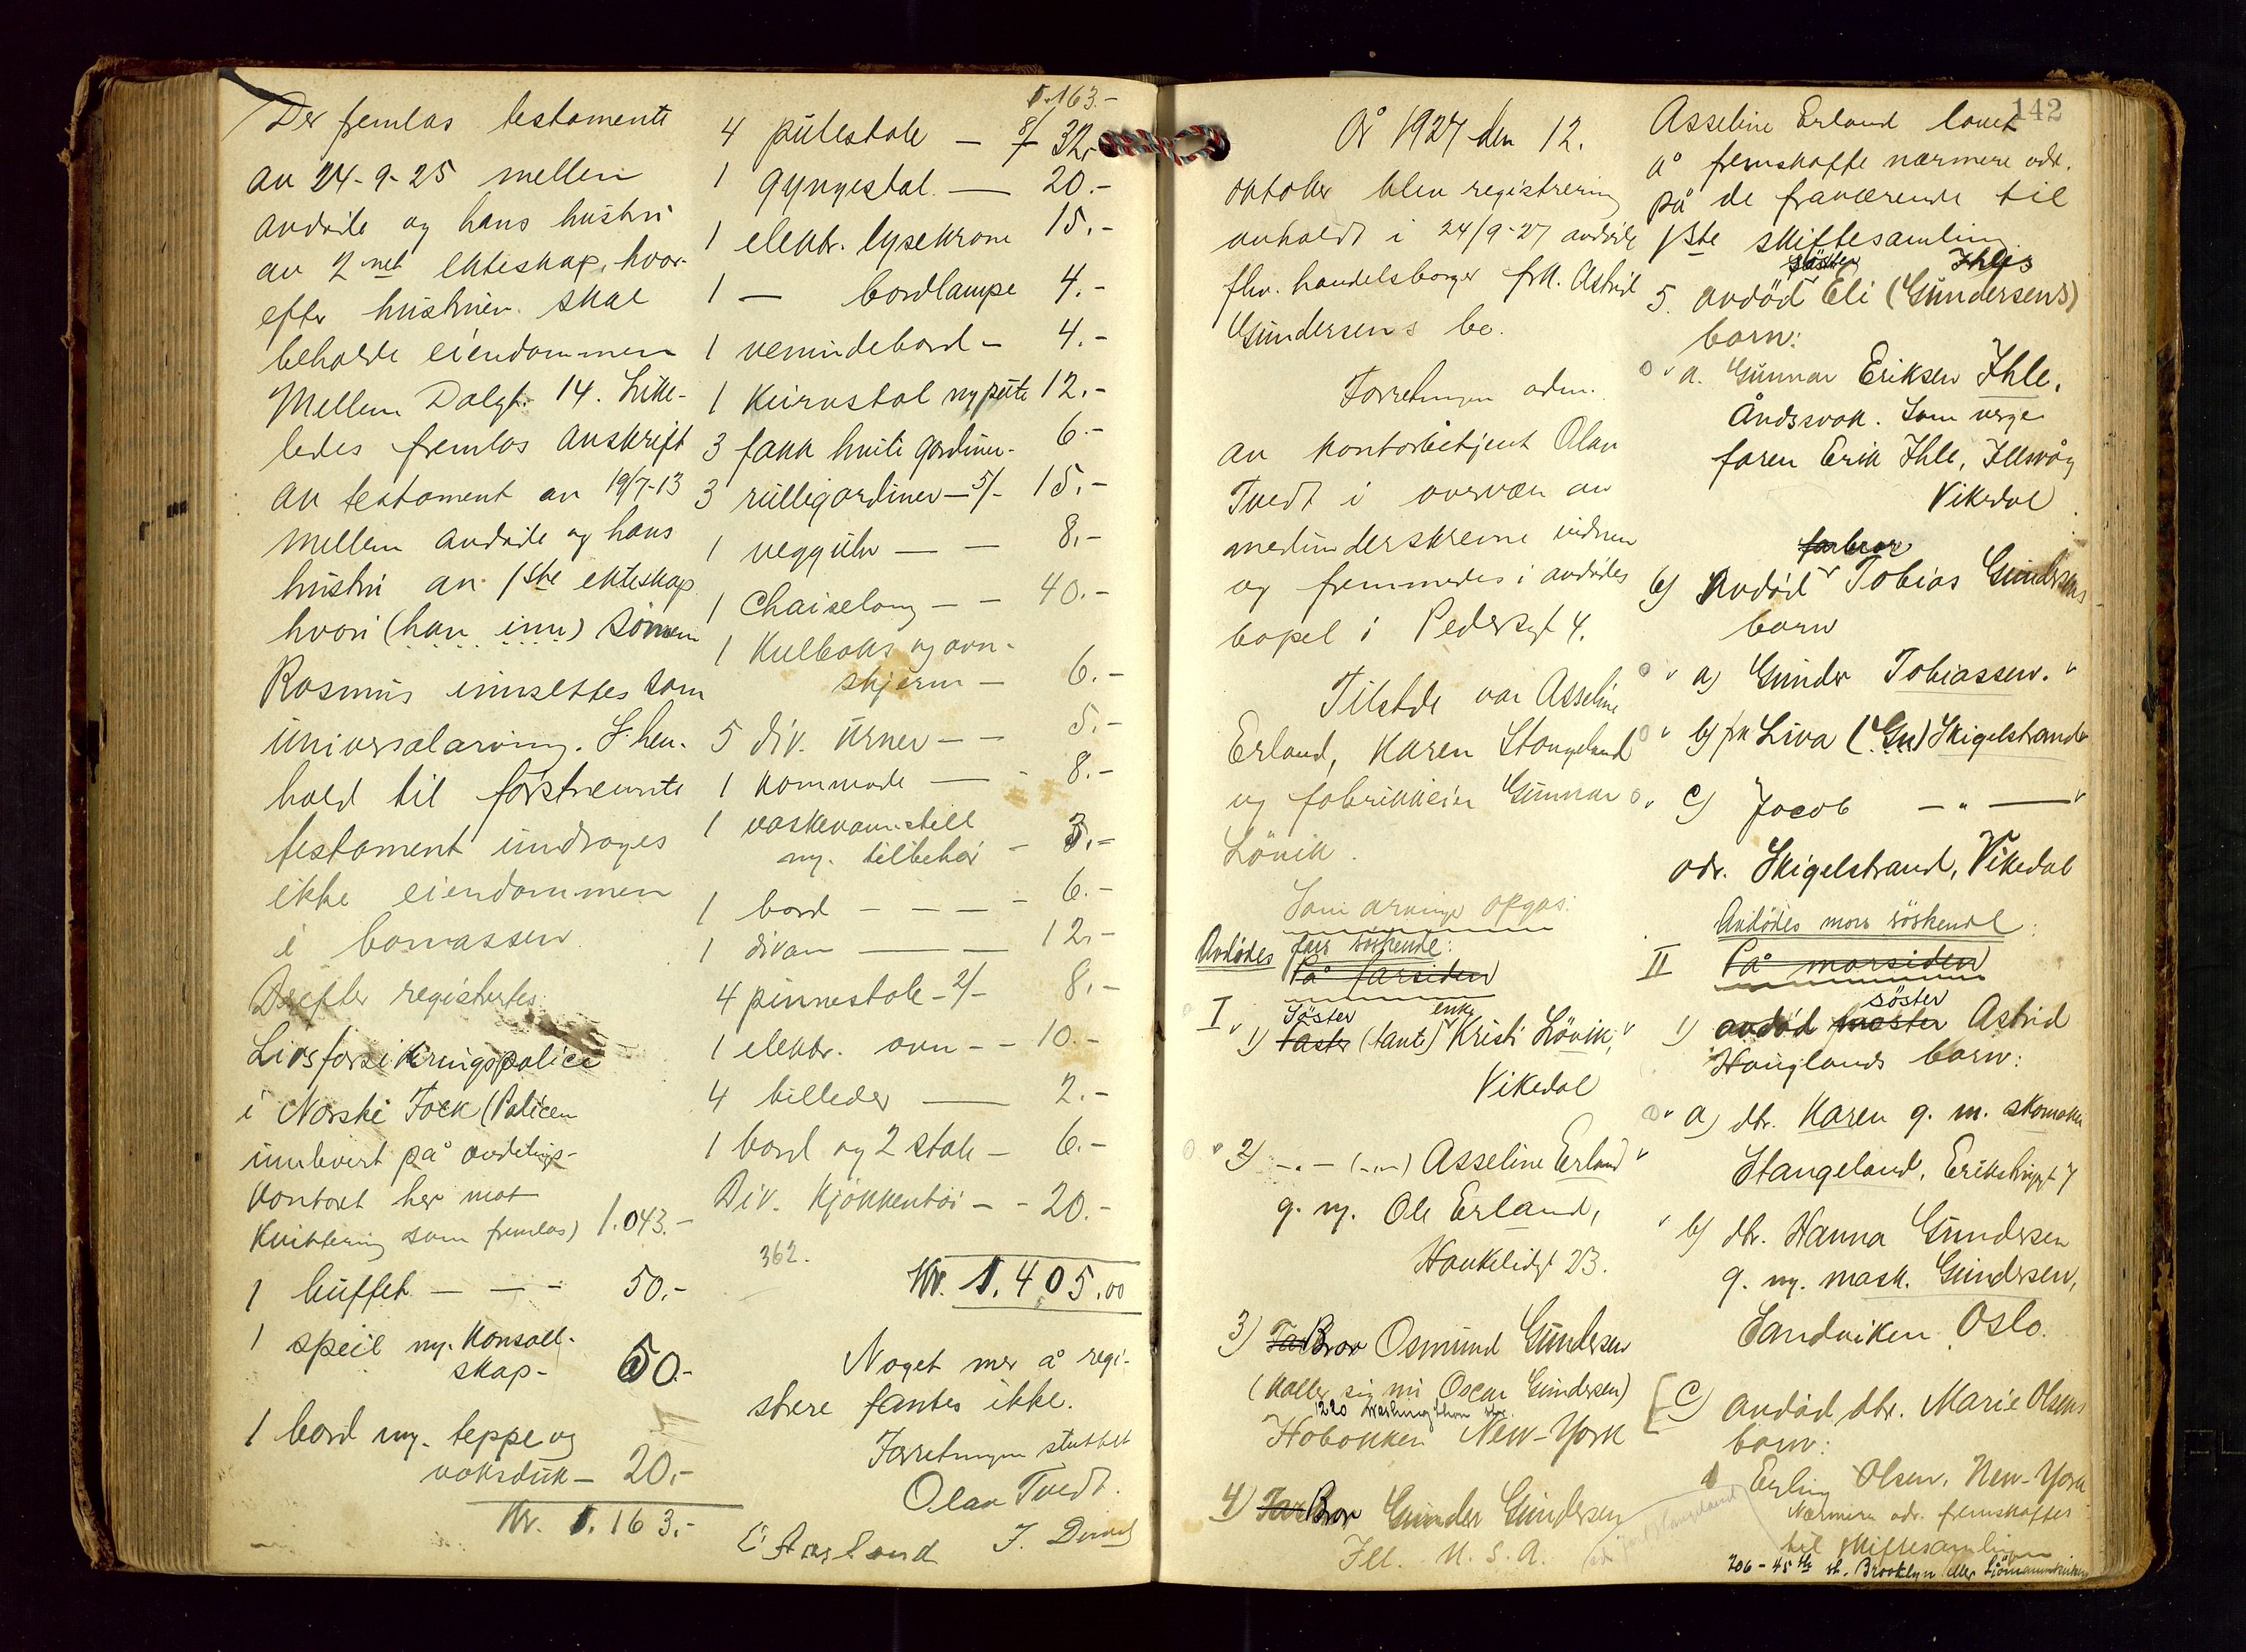 Der fremlas testamente
av 24-9-25 mellem
avdøde og hans hustru
av 2net ekteskap, hvor-
efter hustruen skal
beholde eiendommen
Mellem Dalgt. 14. Like-
ledes fremlas avskrift
av testament av 19/7-13
mellem avdøde og hans
hustru av 1ste ekteskap
hvori (han inn) sønnen
Rasmus innsettes som
universalarving. I hen-
hold til førstnevnte
testament inndrages
ikke eiendommen
i bomassen.
Derefter registrertes:
Livsforsikringspolice
i Norske Folk (Policen
innlevert på avdelings-
kontoret her mot
kvittering som fremlas) 1.043.-
1 buffet — — - 50.-
1 speil m. konsoll-
skap - 50.-
1 bord m. teppe og
voksduk - 20.-
Kr. 1.163.-
1.163.-
4 pütestole — 8/- 32.-
1 gyngestol — 20.-
1 elektr. lysekrone 15.-
1 — bordlampe 4.-
1 verandebord - 4.-
1 kurvstol m/pute 12.-
3 fakk hvite gardiner- 6.-
3 rullegardiner - 5/- 15.-
1 veggühr — — 8.-
1 Chaiselong — — 40.-
1 Kulboks og ovn-
skjerm — 6.-
5 div. Urner — — 5.-
1 kommode — - 8.-
1 vaskevannstell
m. tilbehør - 3.-
1 bord - — — - 6.-
1 divan — — 12.-
4 pinnestole - 2/- 8.-
1 elektr. ovn - - 10.-
4 billeder — 2.-
1 bord og 2 stole - 6.-
Div. Kjøkkentøi - - 20.-
362.
Kr. 1.405.00
Noget mer å regi-
strere fantes ikke.
Forretningen sluttet
Olav Tvedt.
E. Aarland
142
År 1927 den 12.
oktober blev registrering
avholdt i 24/9-27 avdøde
fhv. handelsborger frk. Astrid
Gundersens bo.
Forretningen adm.
av kontorbetjent Olav
Tvedt i overvær av
medunderskrevne vidner
og fremmedes i avdødes
bopel i Pedersgt 4.
Tilstede var Asseline
Erland, Karen Stangeland
og fabrikkeier Gunnar
Lövik.
Som arvinger opgas:
Avdødes fars söskende:
På farsiden
I Söster enke
1) Faster (tante) Kristi Lövik,
Vikedal
2) -„- (-„-) Asseline Erland
g. m. Ole Erland,
Haukeligt 23.
3) Far Bror Osmund Gundersen
(kaller sig nu Oscar Gundersen)
1220 Washington str.
Hobokken New-York
4) Far Bror Gunder Gundersen
Ill. U. S. A.
Asseline Erland lovet
å fremskaffe nærmere adr.
på de fraværende til
1ste skiftesamling.
söster Ihles
5. avdöd Eli (Gundersens)
barn:
a. Gunnar Eriksen Ihle,
Åndssvak. Som verge
faren Erik Ihle, Ilsvåg
Vikedal
farbror
6) Avdöd Tobias Gundersens
barn
a) Gunder Tobiassen.
b) frk Liva (Gu) Skigelstrand
c) Jacob — „ —
adr. Skigelstrand, Vikedal
Avdødes mors söskende:
II På morsiden
söster
1) avdöd moster Astrid
Hauglands barn:
a) dtr. Karen g. m. skomaker
Stangeland, Erikstrupgt 7
b) dtr. Hanna Gundersen
g. m. mask. Gundersen,
Sandviken Oslo.
c) avdöd dtr. Marie Olsens
barn:
1 Erling Olsen, New-York
Nærmere adr. fremskaffes
til skiftesamlingen
706 - 45th st. Brooklyn eller Sjömannskirken